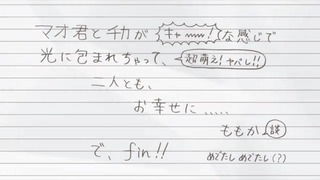 マオ君とチカが キャー〰!な感じで
光に包まれちゃって、超萌え!ヤバし!!
二人とも、
お幸せに.....
ももか談
で、fin!!
めでたしめでたし(?)